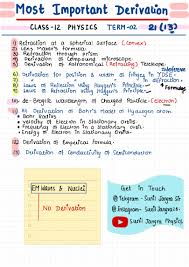 Most Important Derivation
CLASS-12 PHYSICS TERM-02 21 (13)
1) Refraction at a Spherical Surface (Convex)
2) Lens Maker's Formula.
3) Refraction through prism
4) Derivation of Compound microscope.
5) Derivation of Astronomical (Refracting) Telescope.
6) Derivation for position & width of fringes in YDSE
7) Derivation of
8) Laws of Reflection using Huygen's Principle.
9) Laws of Refraction using Huygen's Principle. Formulas
10) de-Broglie Wavelength of Charged Particle (Electron)
11) Derivation of Bohr's Model of Hydrogen atom.
Bohr Radius
Velocity of Electron in Stationary orbit
Energy of Electron in Stationary orbit
12) Derivation of Empirical formula.
13) Derivation of Conductivity of Semiconductor
EM Waves & Nuclei
NO Derivation
Get in Touch
Telegram - Sunil Jangra
Instagram - Sunil Jangra
Sunil Jangra Physics